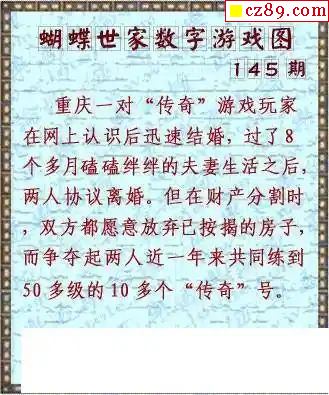 cz89.com
蝴蝶世家数字游戏图
145期
重庆一对“传奇”游戏玩家
在网上认识后迅速结婚，过了8
个多月磕磕绊绊的夫妻生活之后，
两人协议离婚。但在财产分割时
，双方都愿意放弃已按揭的房子，
而争夺起两人近一年来共同练到
50多级的10多个“传奇”号。